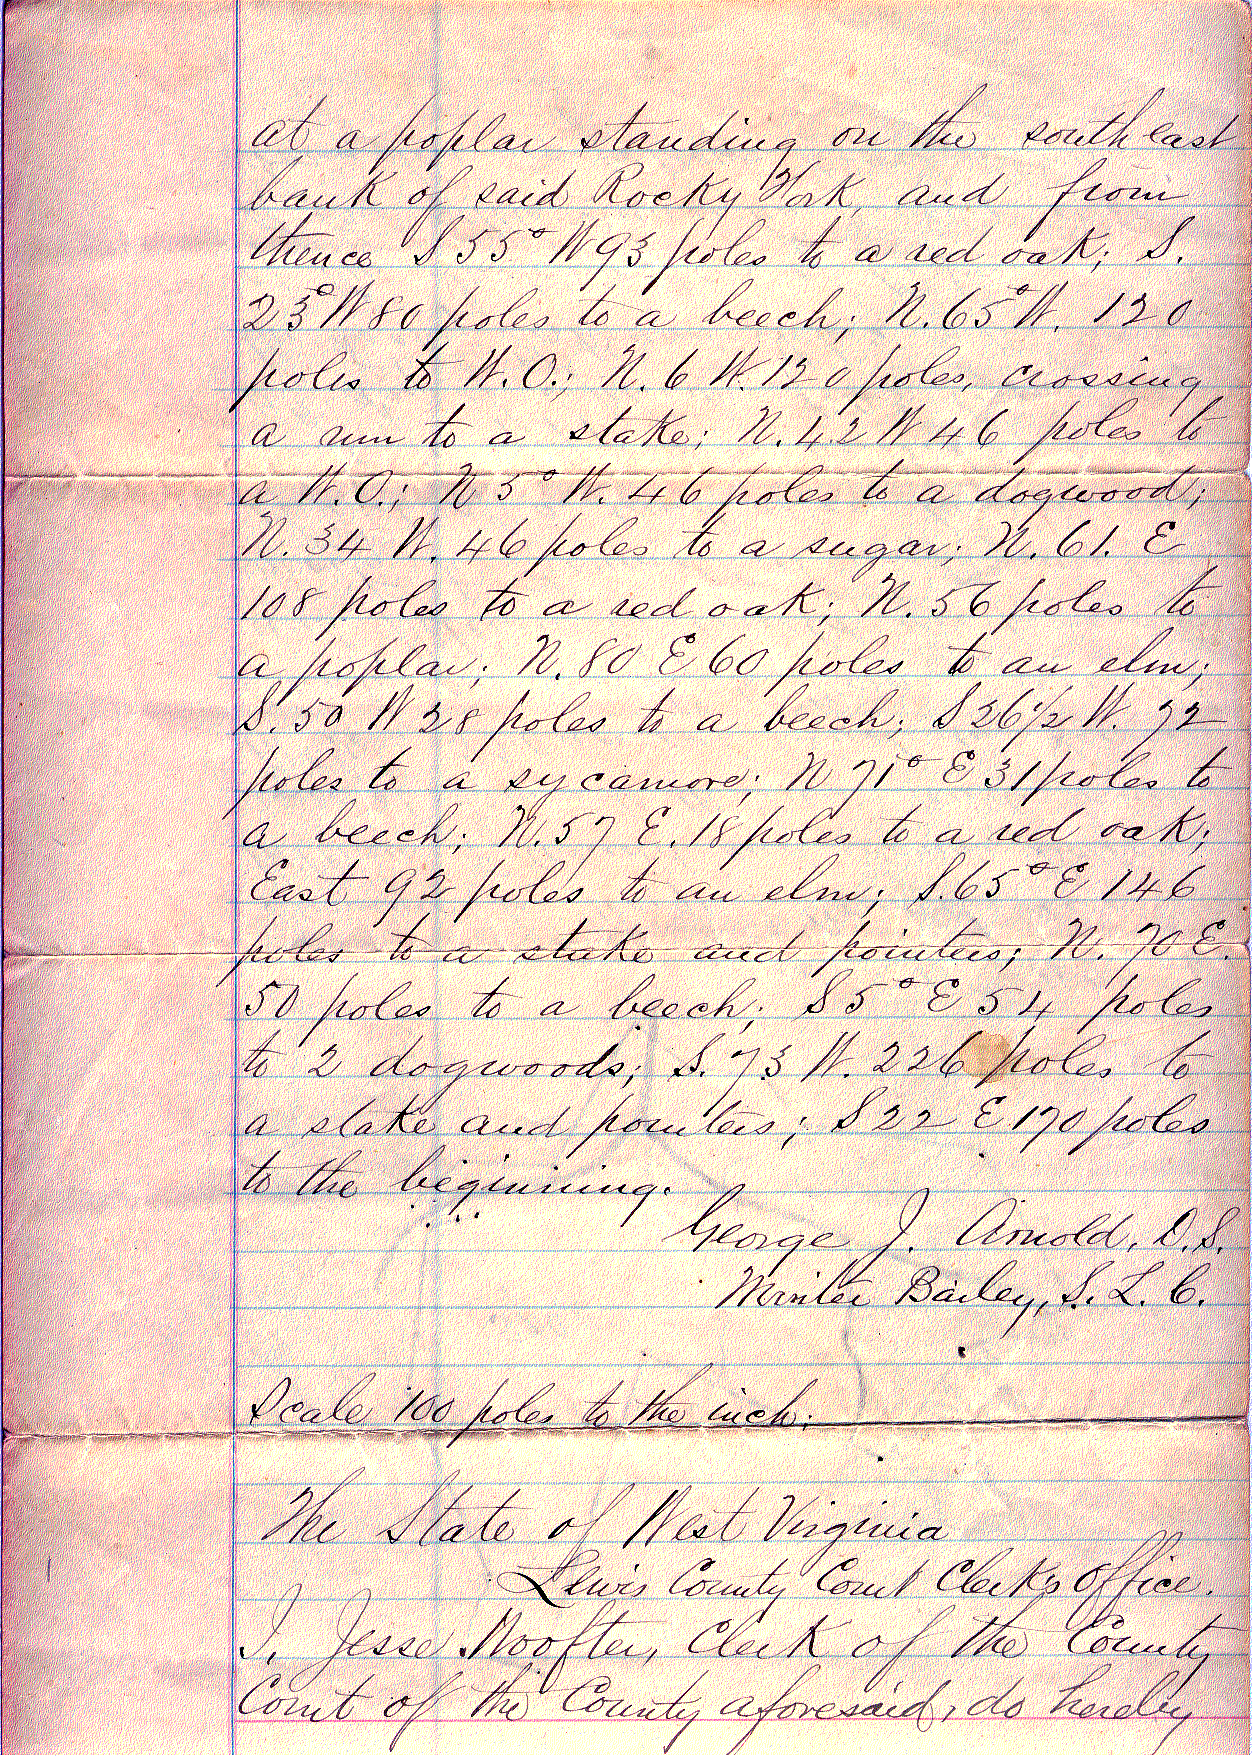 at a poplar standing on the south east
bank of said Rocky Fork, and from
thence S 55° W 93 poles to a red oak; S.
23° W 80 poles to a beech; N. 65° W. 120
poles to W. O.; N. 6 W. 120 poles, crossing
a run to a stake; N. 42 W 46 poles to
a W. O.; N 5° W. 46 poles to a dogwood;
N. 34 W. 46 poles to a sugar; N. 61. E
108 poles to a red oak; N. 56 poles to
a poplar; N. 80 E 60 poles to an elm;
S. 50 W 28 poles to a beech; S 26 1/2 W. 72
poles to a sycamore; N 71° E 31 poles to
a beech; N. 57 E. 18 poles to a red oak;
East 92 poles to an elm; S. 65° E 146
poles to a stake and pointers; N. 70 E.
50 poles to a beech; S 5° E 54 poles
to 2 dogwoods; S. 73 W. 226 poles to
a stake and pointers; S 22 E 170 poles
to the beginning.
George J. Arnold, D. S.
Minter Bailey, S. L. C.
Scale 100 poles to the inch.
The State of West Virginia
Lewis County Court Clerk's office.
I, Jesse Woofter, Clerk of the County
Court of the County aforesaid, do hereby